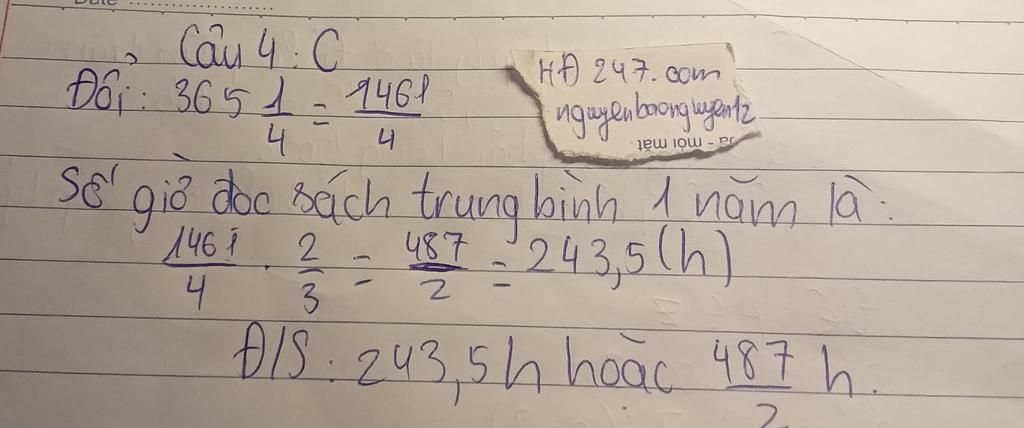 Câu 4: C
Đổi: 365 1/4 = 1461/4
HĐ 247.com
nguyenbaonguyen12
Số giờ đọc sách trung bình 1 năm là:
1461/4 . 2/3 = 487/2 = 243,5 (h)
Đ/S: 243,5h hoặc 487/2 h.